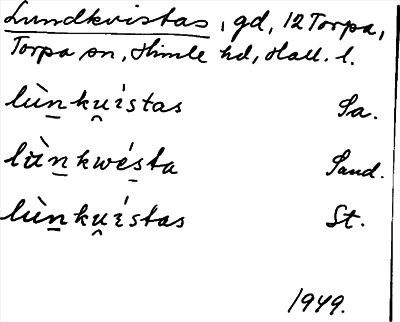 Lundkvistas, gd, 12 Torpa,
Torpa sn, Himle hd, Hall. l.
lùn̲ku̯ístas Sa.
lùn̲kwés̲ta Sand.
lùn̲ku̯ístas St.
1949.